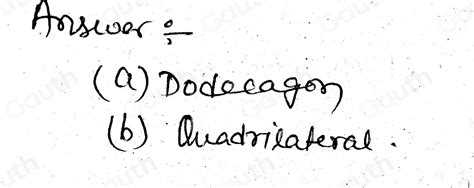 Answer :-
(a) Dodecagon
(b) Quadrilateral .